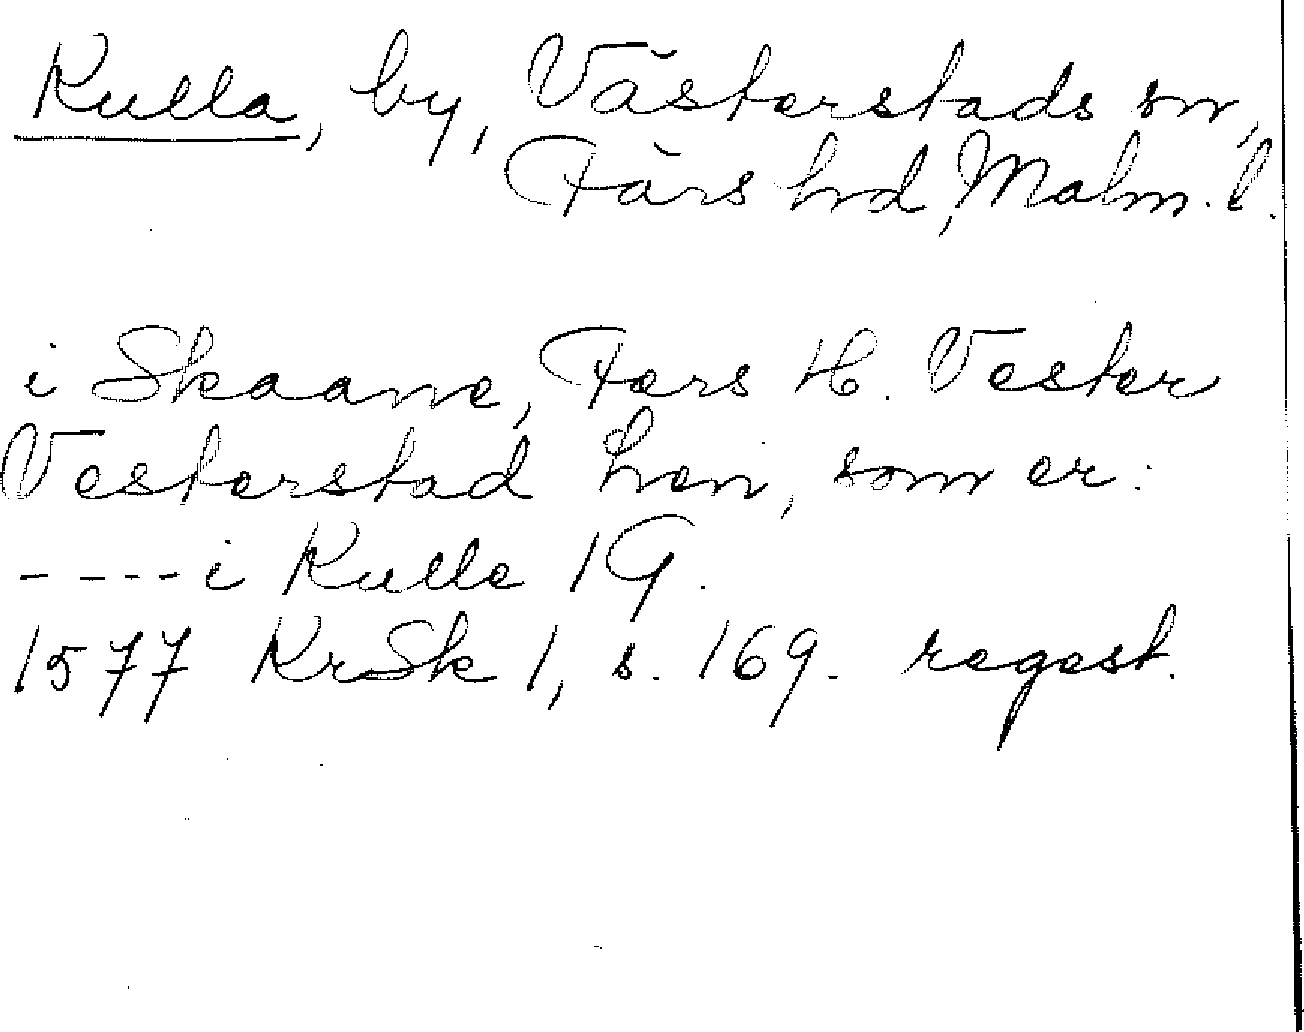 Kulla, by, Västerstads sn,
Färs hrd, Malm. l.
i Skaane, Fers H. Vester
Vesterstad Len, som er:
- - - - i Kulle 1 G.
1577 KrSk 1, s. 169. regest.